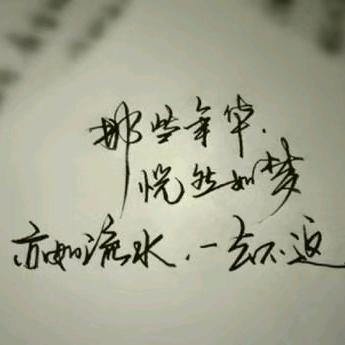 那些年华，
恍然如梦
亦如流水，一去不返